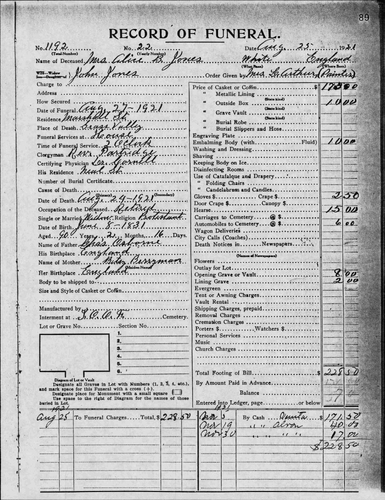 89
RECORD OF FUNERAL.
No. 1192 No. 22 Date Aug 25 1921
(Total Number) (Yearly Number)
Name of Deceased Mrs Alice B Jones White England
(What Race) (Where Born)
John Jones Order Given Mrs McArthur (Painter)
Charge to
Address
How Secured
Date of Funeral Aug 27-1921
Place of Death Marshall St
Residence
Funeral Services at House
Time of Funeral Service 2 O'Clock
Clergyman Rev Partridge
Certifying Physician
His Residence
Number of Burial Certificate
Cause of Death
Date of Death Aug 24-1921
Occupation of the Deceased Retired
Single or Married Widow Religion Protestant
Date of Birth June 8-1831
Aged 90 Years 2 Months 16 Days
Name of Father Chas Osborne
His Birthplace England
Name of Mother Betsy Berryman
Her Birthplace England
Body to be shipped to
Size and Style of Casket or Coffin
Manufactured by
Interment at I.O.O.F. Cemetery
Lot or Grave No. Section No.
Diagram of Lot or Vault
Designate all Graves in Lot with Numbers (1, 2, 3, 4, etc.), and mark space for this Funeral with a cross (+).
Designate place for Monument with a small square
Use the space to right of Diagram for names of those buried in Lot.
Price of Casket or Coffin 175 00
" Metallic Lining
" Outside Box 10 00
" Grave Vault
" Burial Robe
" Burial Slippers and Hose
Engraving Plate
Embalming Body (with Fluid) 10 00
Washing and Dressing
Shaving
Keeping Body on Ice
Disinfecting Rooms
Use of Catafalque and Drapery
" Folding Chairs
" Candelabrum and Candles
Gloves $ Crape $ 2 50
Door Crape $ Hearse $
Hearse 15 00
Carriages to Cemetery @ $
Automobiles to Cemetery @ $
Wagon Deliveries
City Calls (Coaches) @ $
Death Notices in Newspapers
(Names of Newspapers)
Flowers
Outlay for Lot
Opening Grave or Vault 8 00
Lining Grave 2 00
Evergreen
Tent or Awning Charges
Vault Rental
Shipping Charges, prepaid
Removal Charges
Cremation Charges
Porters $ Watchers $
Personal Services
Music
Church Charges
Total Footing of Bill 228 50
By Amount Paid in Advance
Balance
Entered into Ledger, page or below.
1921
Aug 25 To Funeral Charges Total $ 228 50
Nov 5 By Cash 171.50
Nov 19 " " 40.00
Nov 30 " " 17.00
$228.50